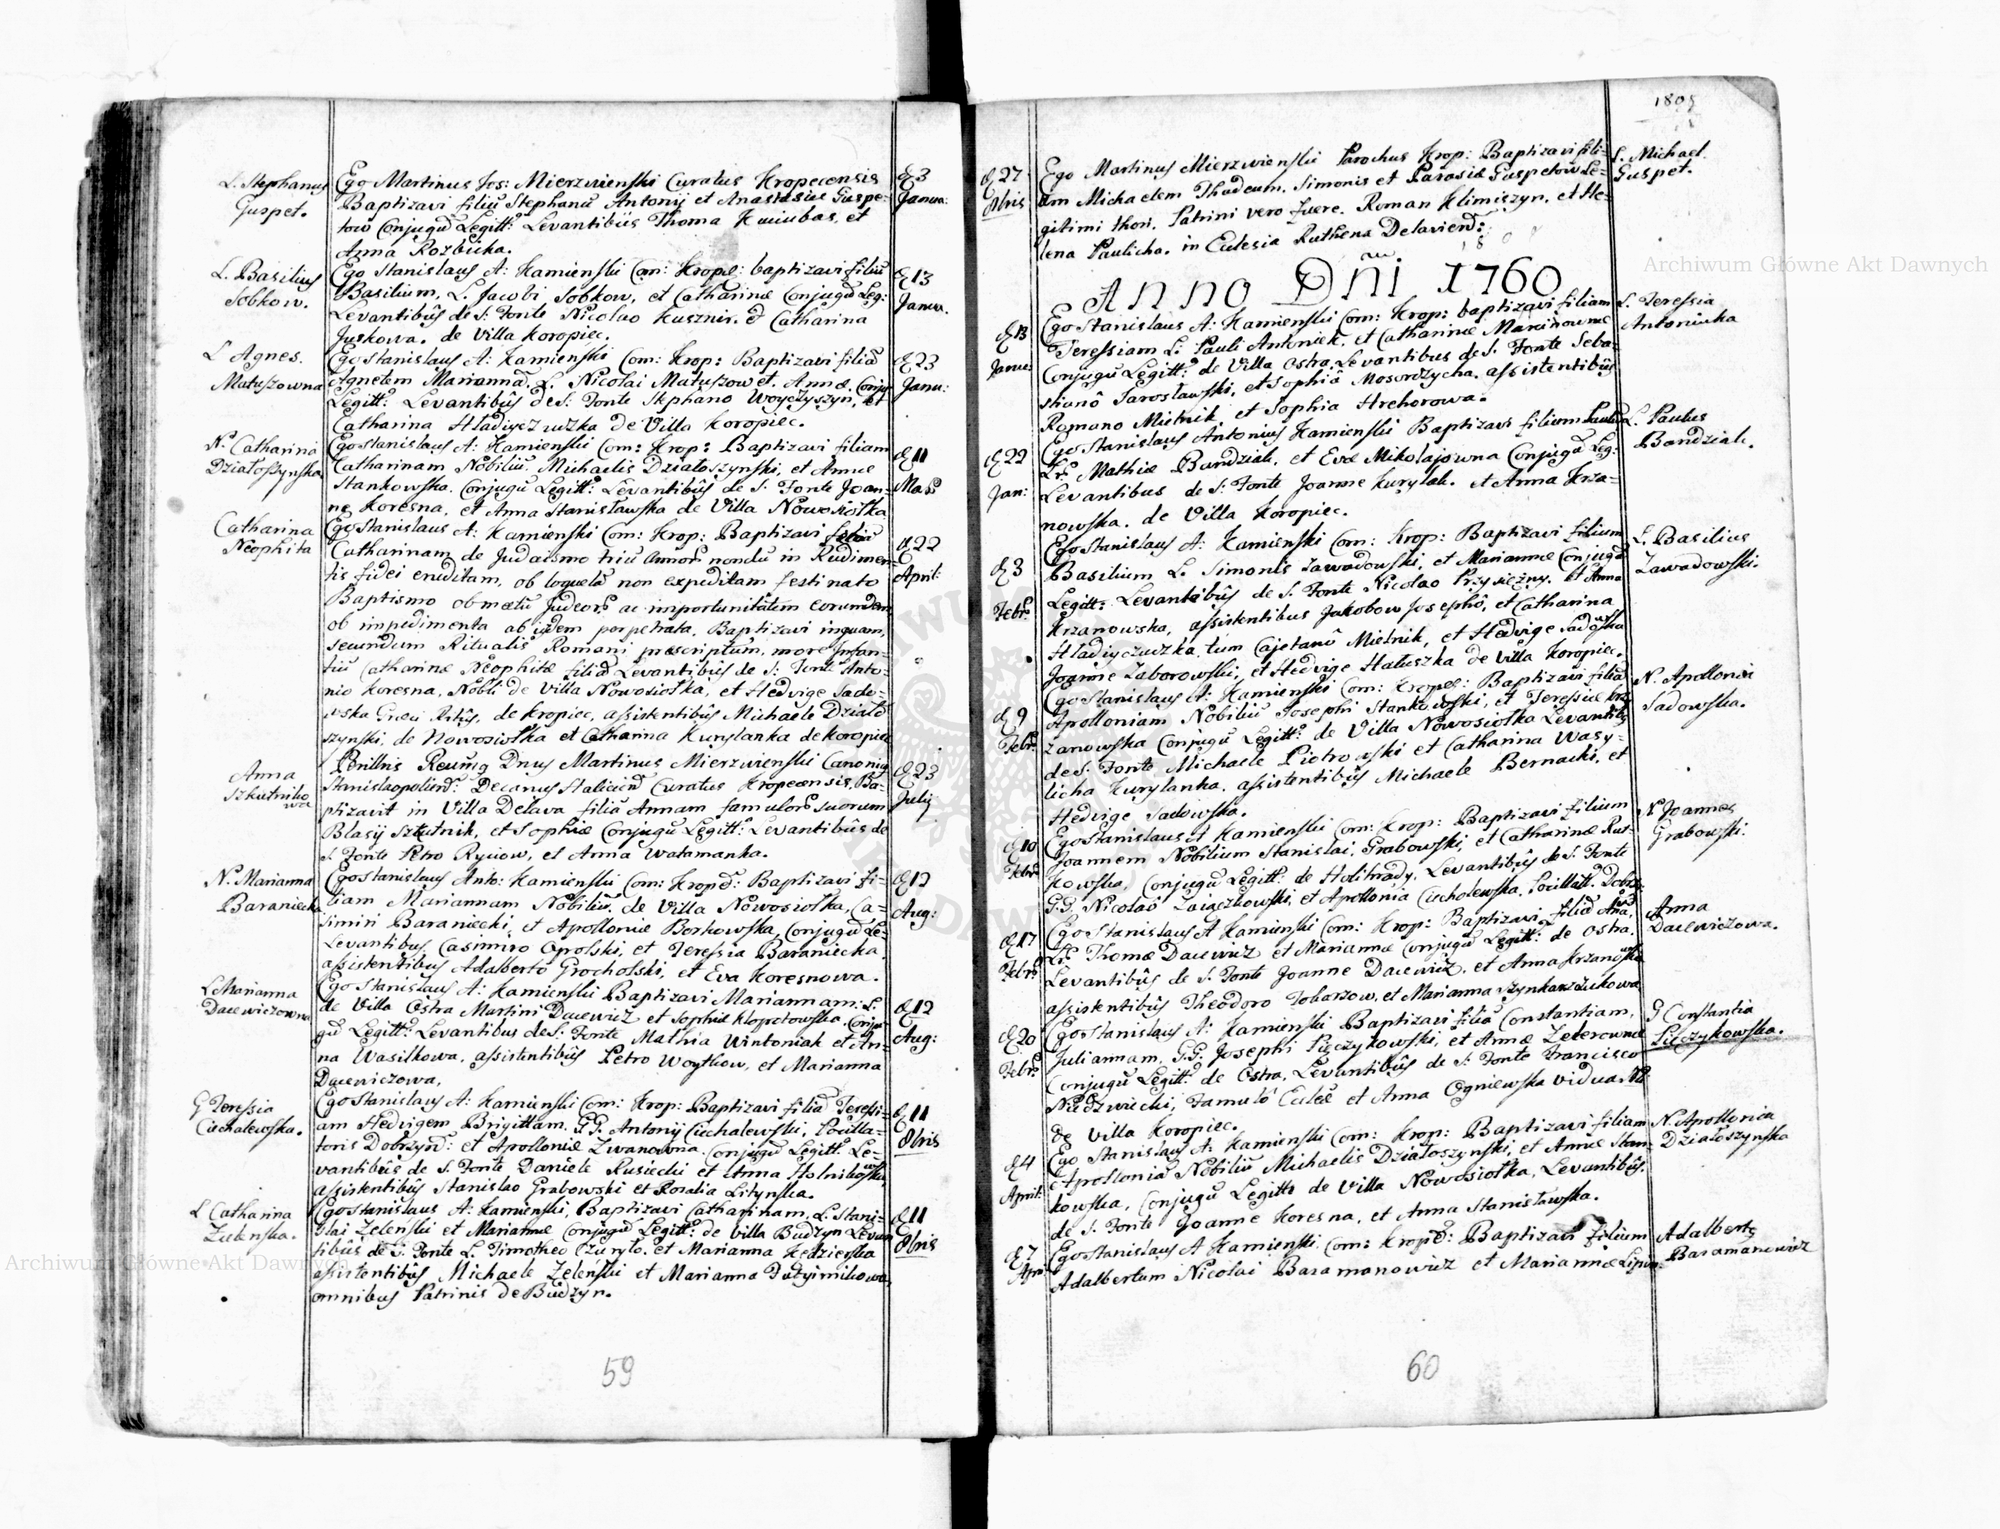 L. Stephanus
Guspet.
Ego Martinus Jos: Mierzwienski Curatus Kropecensis
Baptizavi filiu Stephanu Antonij et Anastasiae Guspe-
tow Conjugu Legitt: Levantibus Thoma Kuiubas, et
Anna Rozbicka.
D 3
Janua:
L. Basilius
Sobkow.
Ego Stanislaus A: Kamienski Com: Krope: baptizavi filiu
Basilium, L. Jacobi Sobkow, et Catharinae Conjugu Leg:
Levantibus de S: Fonte Nicolao Kusznir. et Catharina
Juskowa. de Villa Koropiec.
D 13
Janua.
L Agnes.
Matuszowna
Ego Stanislaus A: Kamienski Com: Krop: Baptizavi filia
Agnetem Marianna. L. Nicolai Matuszow et. Annae. Conju
Legitt: Levantibus de S: Fonte Stephano Woyczyszyn, et
Catharina Hladiyczuczka de Villa Koropiec.
D 23
Janu:
N. Catharina
Dzialoszynska
Ego Stanislaus A: Kamienski Com: Krop: Baptizavi filiam
Catharinam Nobiliu. Michaelis Dzialoszynski, et Annae
Stankowska. Conjugu Legitt: Levantibus de S. Fonte Joan-
ne Koresna, et Anna Stanislawska de Villa Nowosiolka
D 11
Mar
Catharina
Neophita
Ego Stanislaus A: Kamienski Com: Krop: Baptizavi filia
Catharinam de Judaismo triu Annor nondu in Rudimen
tis fidei eruditam, ob loquela non expeditam festinato
Baptismo ob metu Judeor ac importunitatem eorundem
ob impedimenta ab ijsdem perpetrata, Baptizavi inquam,
secundum Ritualis Romani praescriptum, more Infan-
tiu Catharinae Neophitae filia Levantibus de S: Fonte Anto-
nio Koresna, Nobli de Villa Nowosiolka, et Hedvige Sado-
wska de Kropiec, assistentibus Michaele Dzialo
szynski, de Nowosiolka et Catharina Kurylanka de Koropiec
D 22
April:
Anna
Szkutniko
wa
Perillris Reumg Dnus Martinus Mierzwienski Canonig
Stanislaopoliens: Decanus Haliciens Curatus Kropecensis. Ba-
ptizavit in Villa Delava filia Annam famulor suorum
Blasij Szkutnik, et Sophiae Conjugu Legitt: Levantibus de
S. Fonte Petro Ryciow, et Anna Watamanka.
D 23
Julij
N. Marianna
Baraniecka
Ego Stanislaus Anto: Kamienski Com: Krop: Baptizavi fi-
liam Mariannam Nobiliu. de Villa Nowosiolka, Ca-
simiri Baraniecki, et Apolloniae Borkowska, Conjugu Le-
Levantibus, Casimiro Opolski, et Teressia Baraniecka.
assistentibus Adalberto Grocholski, et Eva Koresnowa.
D 12
Aug:
L Marianna
Dacewiczowna
Ego Stanislaus A: Kamienski Baptizavi Mariannam: L.
de Villa Ostra Martini Dacewicz et Sophiae Klopotowska. Conju
gu Legitt: Levantibus de S. Fonte Mathia Wintoniak et An-
na Wasilkowa, assistentibus Petro Woytkow, et Marianna
Dacewiczowa.
D 12
Aug:
G Teressia
Ciechalewska.
Ego Stanislaus A: Kamienski Com: Krop: Baptizavi filia Teressi-
am Hedvigem Brigittam. G.G. Antonij Ciechalewski, Pocilla-
toris Dobrzyn: et Apolloniae Zwanowna. Conjugu Legitt. Le-
vantibus de S. Fonte Daniele Rusiecki et Anna Holnikowska
assistentibus Stanislao Grabowski et Rosalia Litynska.
D 11
Obris
L Catharina
Zelenska.
Ego Stanislaus A: Kamienski, Baptizavi Catharinam, L. Stani-
slai Zelenski et Mariannae Conjugu Legitt: de Villa Budzyn Levan
tibus de S. Fonte L. Timotheo Czurylo, et Marianna Kedzierska
assistentibus Michaele Zelenski et Marianna Dutyimikowa
omnibus Patrinis de Budzyn.
D 11
Obris
59
1805
D 27
Obris
Ego Martinus Mierzwienski Parochus Krop: Baptizavi fili-
um Michaelem Thadeum, Simonis et Parasiae Guspetow Le-
gitimi thori. Patrini vero fuere. Roman Klimiszyn, et He-
lena Paulicha. in Eclesia Ruthena Delaviens:
L. Michael
Guspet.
Anno Dni 1760
D 13
Janua:
Ego Stanislaus A: Kamienski Com: Krop: baptizavi filiam
Teressiam L. Pauli Antoniek, et Catharinae Marcinowne
Conjugu Legitt: de Villa Ostra Levantibus de S. Fonte Seba-
stiano Jaroslawski, et Sophia Mosordzycha. assistentibus
Romano Mielnik et Sophia Hrehorowa.
L. Teressia
Antoniuka
D 22
Jan:
Ego Stanislaus Antonius Kamienski Baptizavi filium Paulu
L. Mathiae Bandziak, et Evae Mikolajowna Conjugu Leg:
Levantibus de S: Fonte Joanne Kurylak. et Anna Krza-
nowska. de Villa Koropiec.
L. Paulus
Bandziak.
D 3
Febr:
Ego Stanislaus A: Kamienski Com: Krop: Baptizavi filium
Basilium L. Simonis Zawadowski, et Mariannae Conjugu
Legitt: Levantibus de S. Fonte Nicolao Przysiezny, et Anna
Krzanowska, assistentibus Jakobow Josepho, et Catharina
Hladiyczuczka tum Cajetano Mielnik, et Hedvige Sadowska
Joanne Zaborowski, et Hedvige Haluszka de Villa Koropiec.
L. Basilius
Zawadowski.
D 9
Febr:
Ego Stanislaus A: Kamienski Com: Krope: Baptizavi filia
Apolloniam Nobiliu Josephi Stankowski, et Teressiae Krz
zanowska Conjugu Legitt: de Villa Nowosiolka Levantibus
de S. Fonte Michaele Piotrowski et Catharina Wasy-
licha Kurylanka. assistentibus Michaele Bernacki, et
Hedvige Sadowska.
N. Apollonia
Sadowska.
D 10
Febr:
Ego Stanislaus A Kamienski Com: Krop: Baptizavi filium
Joannem Nobilium Stanislai, Grabowski, et Catharinae Rut-
kowska, Conjugu Legitt: de Holihrady, Levantibus de S. Fonte
G.G. Nicolao Zaiączkowski, et Apollonia Ciecholewska, Pocillatt. Dobrz:
N Joannes
Grabowski.
D 17
Febr:
Ego Stanislaus A Kamienski Com: Krop: Baptizavi filia Ana,
L. Thomae Dacewicz et Mariannae Conjugu Legitt: de Ostra.
Levantibus de S. Fonte Joanne Dacewicz, et Anna Krzanowska
assistentibus Theodoro Tokarzow, et Marianna Szynkarzukowa
Anna
Dacewiczowa.
D 20
Febr:
Ego Stanislaus A: Kamienski Baptizavi filia Constantiam,
Juliannam, G.G. Josephi Pięczykowski, et Annae Zeterownae
Conjugu Legitt: de Ostra, Levantibus de S. Fonte Francisco
Niedzwiecki, Famulo Eccles et Anna Ogniewska vidua
de Villa Koropiec.
G Constantia
Pięczykowska.
D 4
April:
Ego Stanislaus A: Kamienski Com: Krop: Baptizavi filiam
Apollonia Nobiliu Michaelis Dzialoszynski, et Annae Stan-
kowska, Conjugu Legitt: de Villa Nowosiolka, Levantibus.
de S. Fonte Joanne Koresna, et Anna Stanislawska.
N. Apollonia
Dzialoszynska
D 7
Apr:
Ego Stanislaus A Kamienski Com: Krop: Baptizavi filium
Adalbertum Nicolai Baramanowicz et Mariannae Lipin:
Adalberts
Baramanowicz
60
Archiwum Główne Akt Dawnych
Archiwum Główne Akt Dawnych